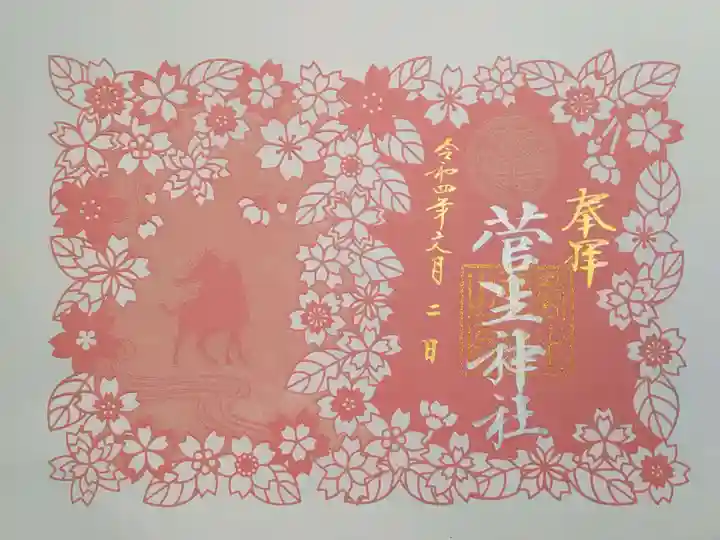 奉拝
菅生神社
令和四年六月二日